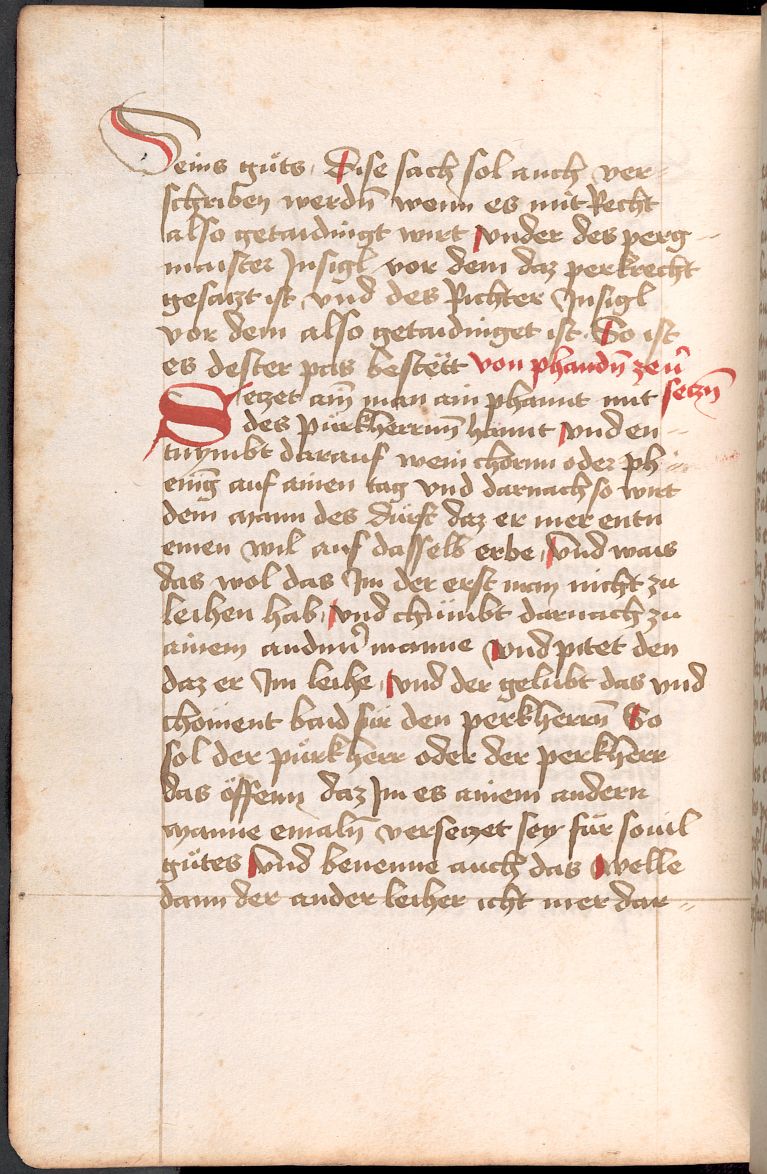 Seins gůts, Dise sach sol auch ver-
schriben werdn̄ wenn es mit Recht
also getaidingt wirt vnder des perg-
maister Insigl vor dem daz perkrecht
gesatzt ist vnd des Richter Insigl
vor dem also getaidinget ist. So ist
es dester pas bestëtt von phandn̄ zeu̇
Setzet ain̄ man ain phannt mit setzn̄
des pürkherrnn̄ hannt vnd en-
tnymbt darauf wein chornn oder ph
ening auf ainen tag vnd darnach so wirt
dem mann des dürft daz er mer entn
emen wil auf dasselb erbe, Vnd wais
das wol das Im der erst man nicht zu
leihen hab, vnd chümbt darnach zu
ainem andnn̄ manne vnd pitet den
daz er Im leihe, vnd der gelubt das vnd
choment baid für den perkherrn̄ So
sol der pürkherr oder der perkherr
das öffenn daz Im es ainem andern
manne emaln̄ versetzet sey für souil
gůtes Vnd benenne auch das Welle
dann der ander leiher icht mer dar-